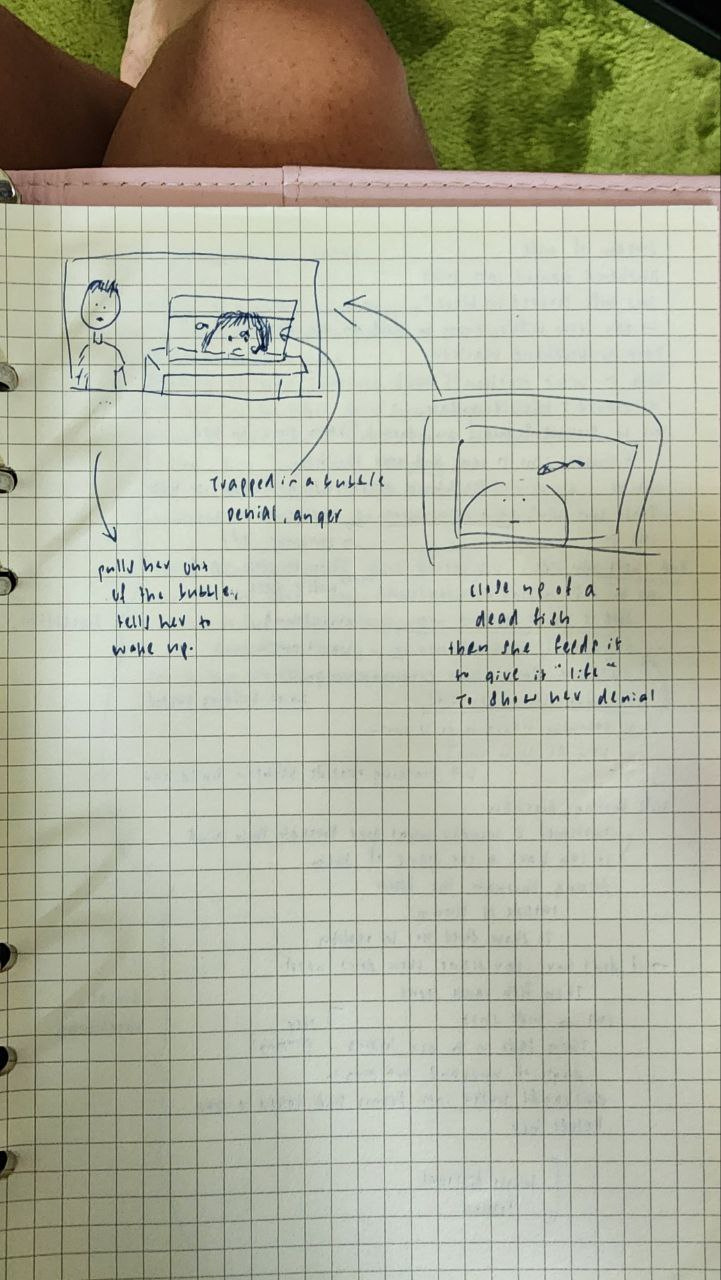 Trapped in a bubble
Denial, anger
pulls her out
of the bubble,
tells her to
wake up.
close up of a
dead fish
then she feeds it
to give it "life"
To show her denial